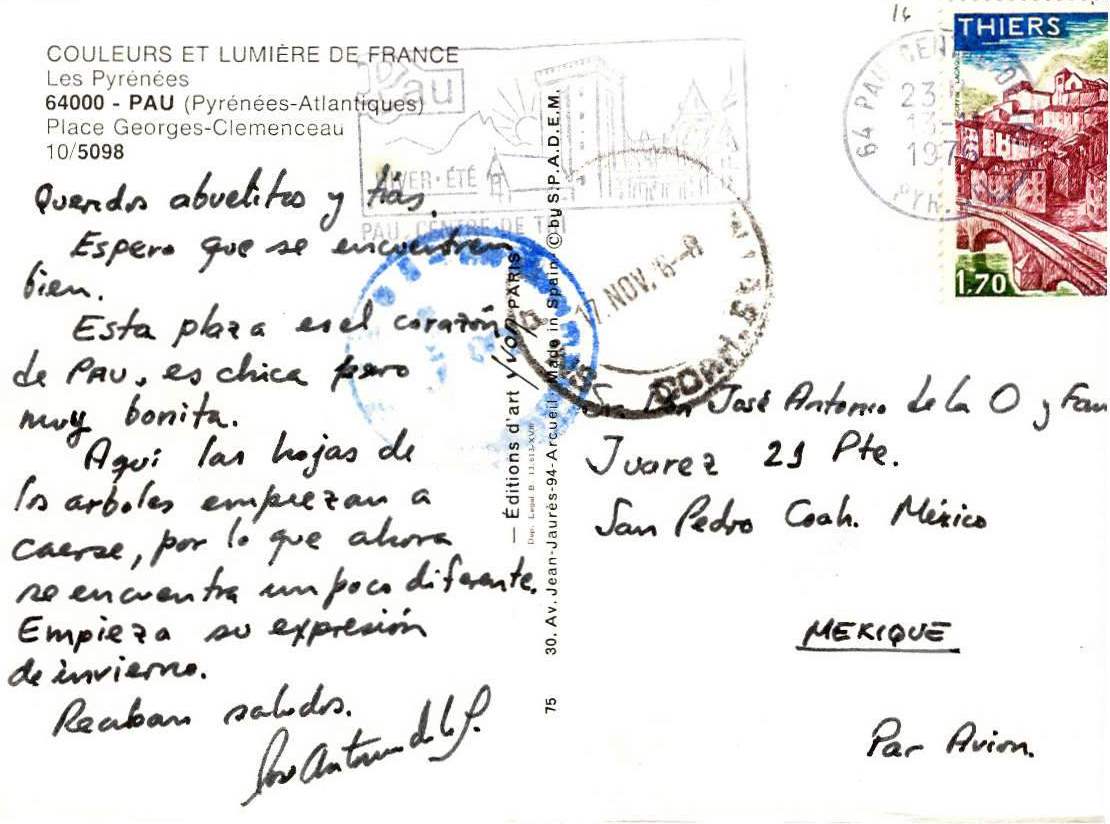 COULEURS ET LUMIÈRE DE FRANCE
Les Pyrénées
64000 - PAU (Pyrénées-Atlantiques)
Place Georges-Clemenceau
10/5098
Queridos abuelitos y tías.
Espero que se encuentren
bien.
Esta plaza es el corazón
de PAU, es chica pero
muy bonita.
Aquí las hojas de
los arboles empiezan a
caerse, por lo que ahora
se encuentra un poco diferente.
Empieza su expresión
de invierno.
Reciban saludos.
José Antonio de la
Pau
HIVER - ÉTÉ
PAU, CENTRE DE
— Éditions d'art YVON PARIS
Dep. Legal B. 13.613-XVIII
75 30, Av. Jean-Jaurès-94-Arcueil Made in Spain © by S.P.A.D.E.M.
17 NOV. 76-8
16
64 PAU
23
13-11
1976
PYR.
THIERS
1,70
Sr. Don José Antonio de la O y Fam
Juarez 21 Pte.
San Pedro Coah. México
MEXIQUE
Par Avion.